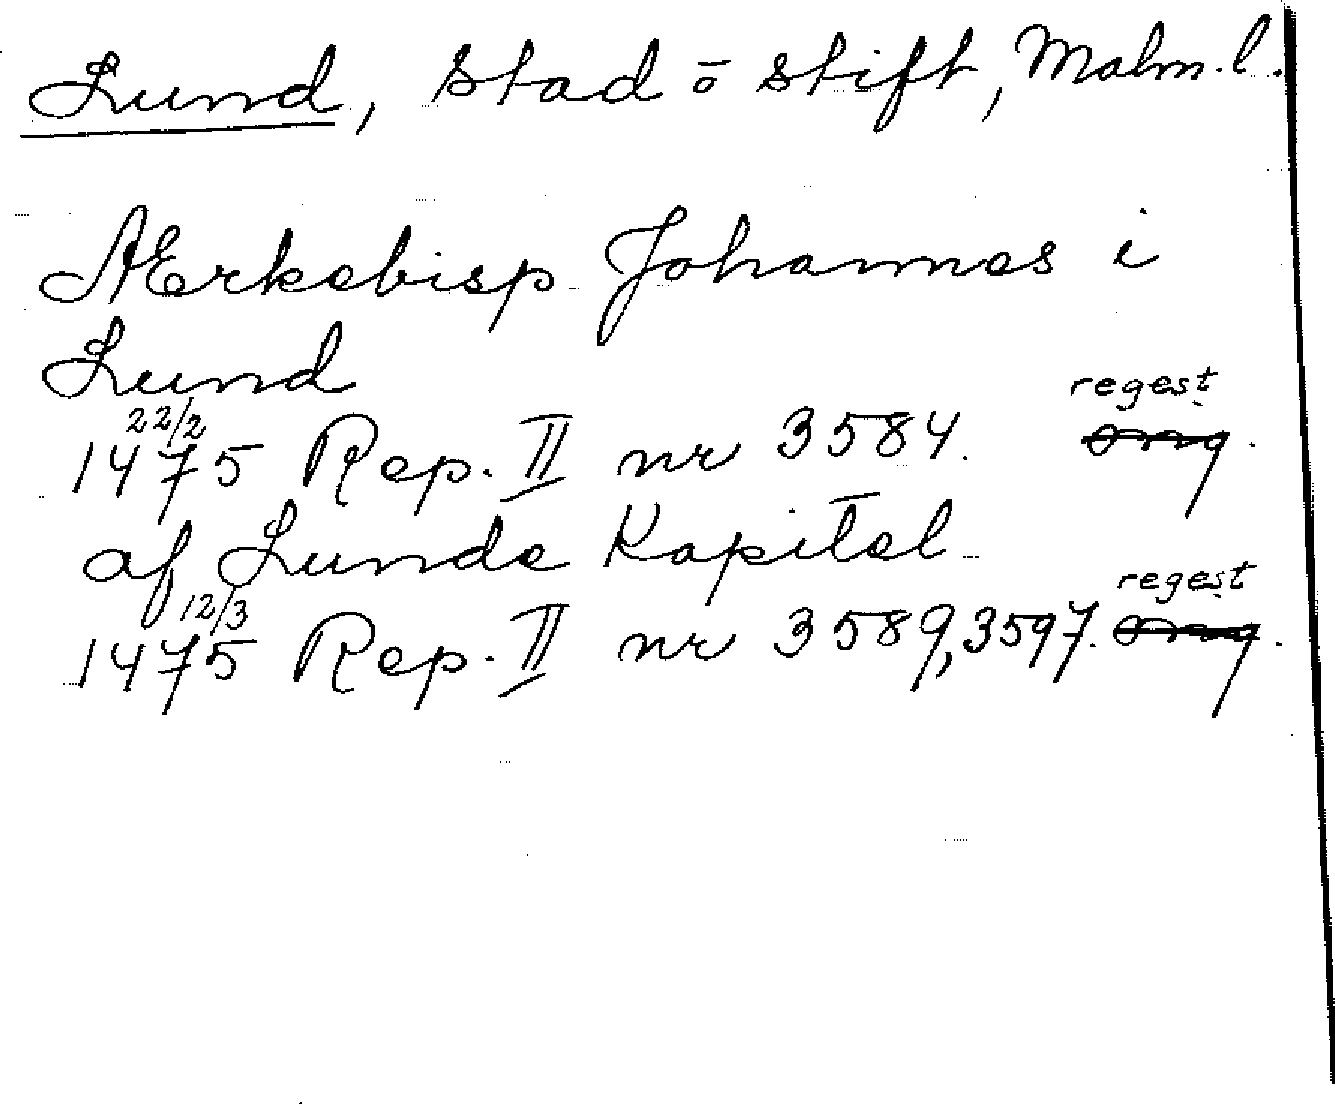 Lund, Stad ō stift, Malm.l.
Ærkebisp Johannes i
Lund
22/2 regest
1475 Rep. II nr 3584. omg.
af Lunde Kapitel
12/3 regest
1475 Rep. II nr 3589, 3597. omg.